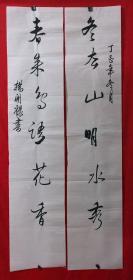 丁亥年冬月
冬去山明水秀
春来鸟语花香